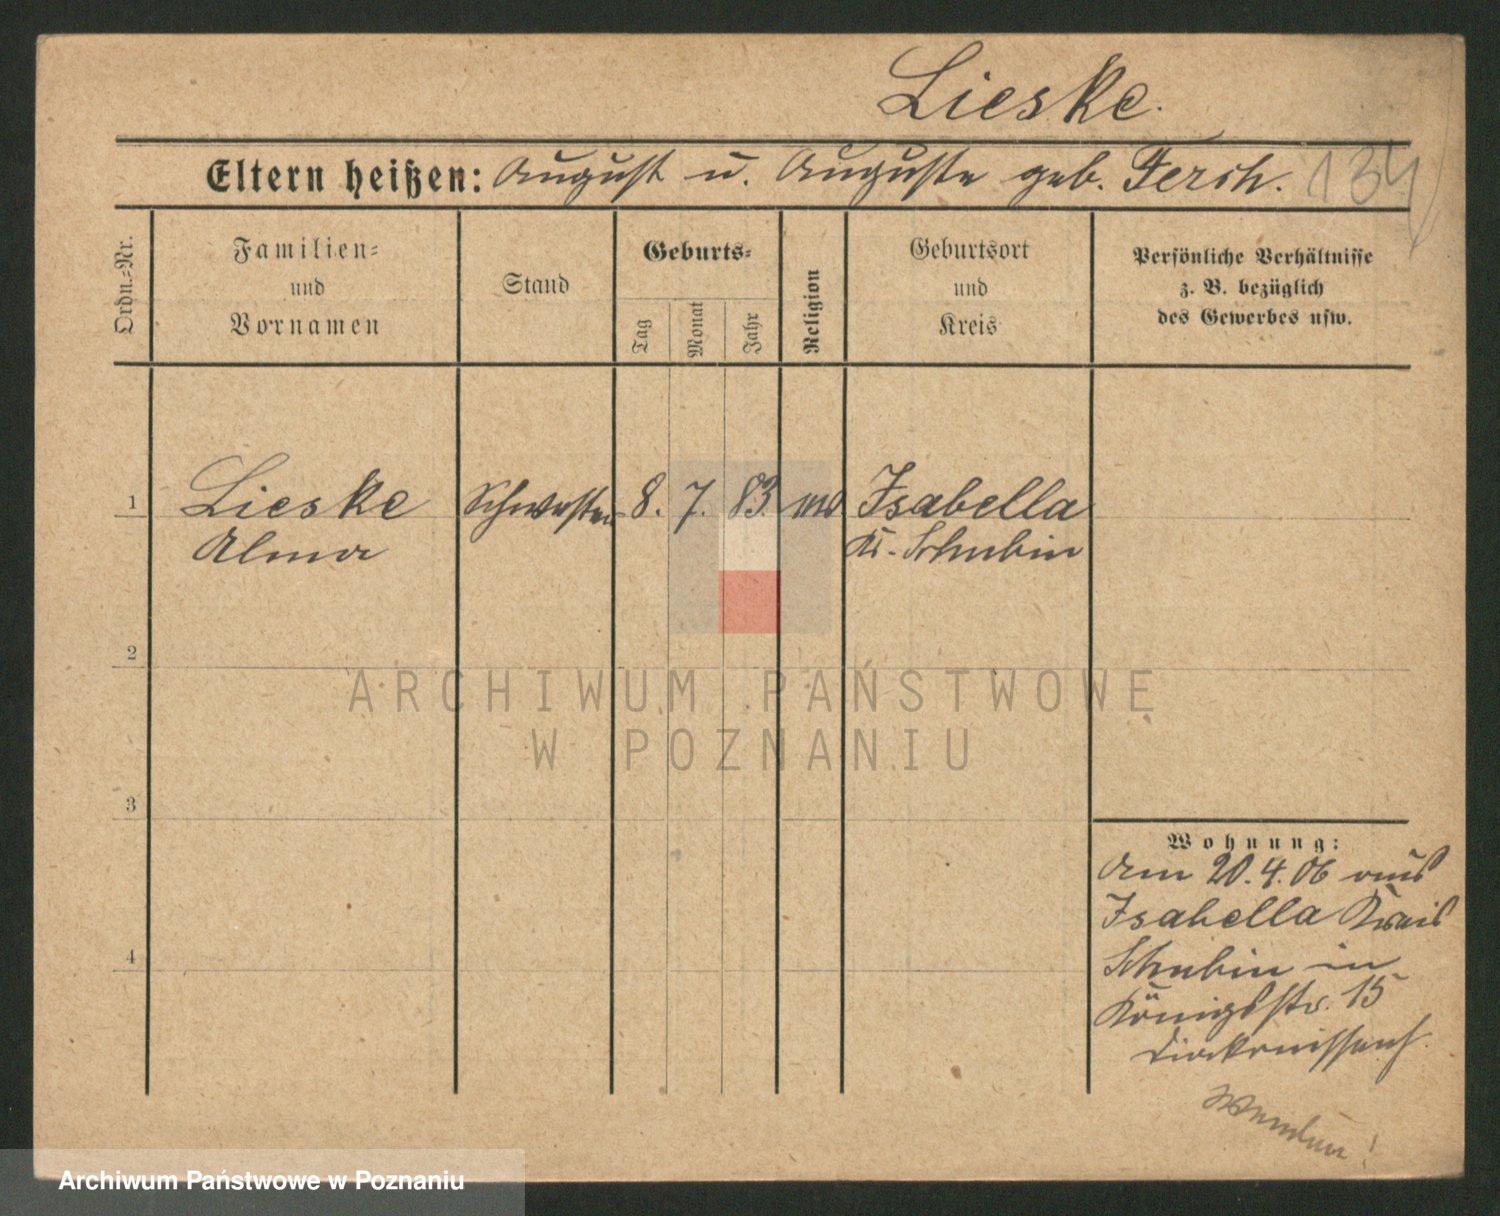 Lieske.
Eltern heißen: August u. Auguste geb. Ferch. 134
Ordn.-Nr.
Familien-
und
Vornamen
Stand
Geburts-
Tag
Monat
Jahr
Religion
Geburtsort
und
Kreis
Persönliche Verhältnisse
z. B. bezüglich
des Gewerbes usw.
1 Lieske Schwester 8. 7. 83 Isabella
Alma Kr. Schubin
2
3
4
Wohnung:
Am 20.4.06 aus
Isabella Kreis
Schubin in
Königsstr. 15
Diakonissenh.
Wenden!
ARCHIWUM PAŃSTWOWE
W POZNANIU
Archiwum Państwowe w Poznaniu